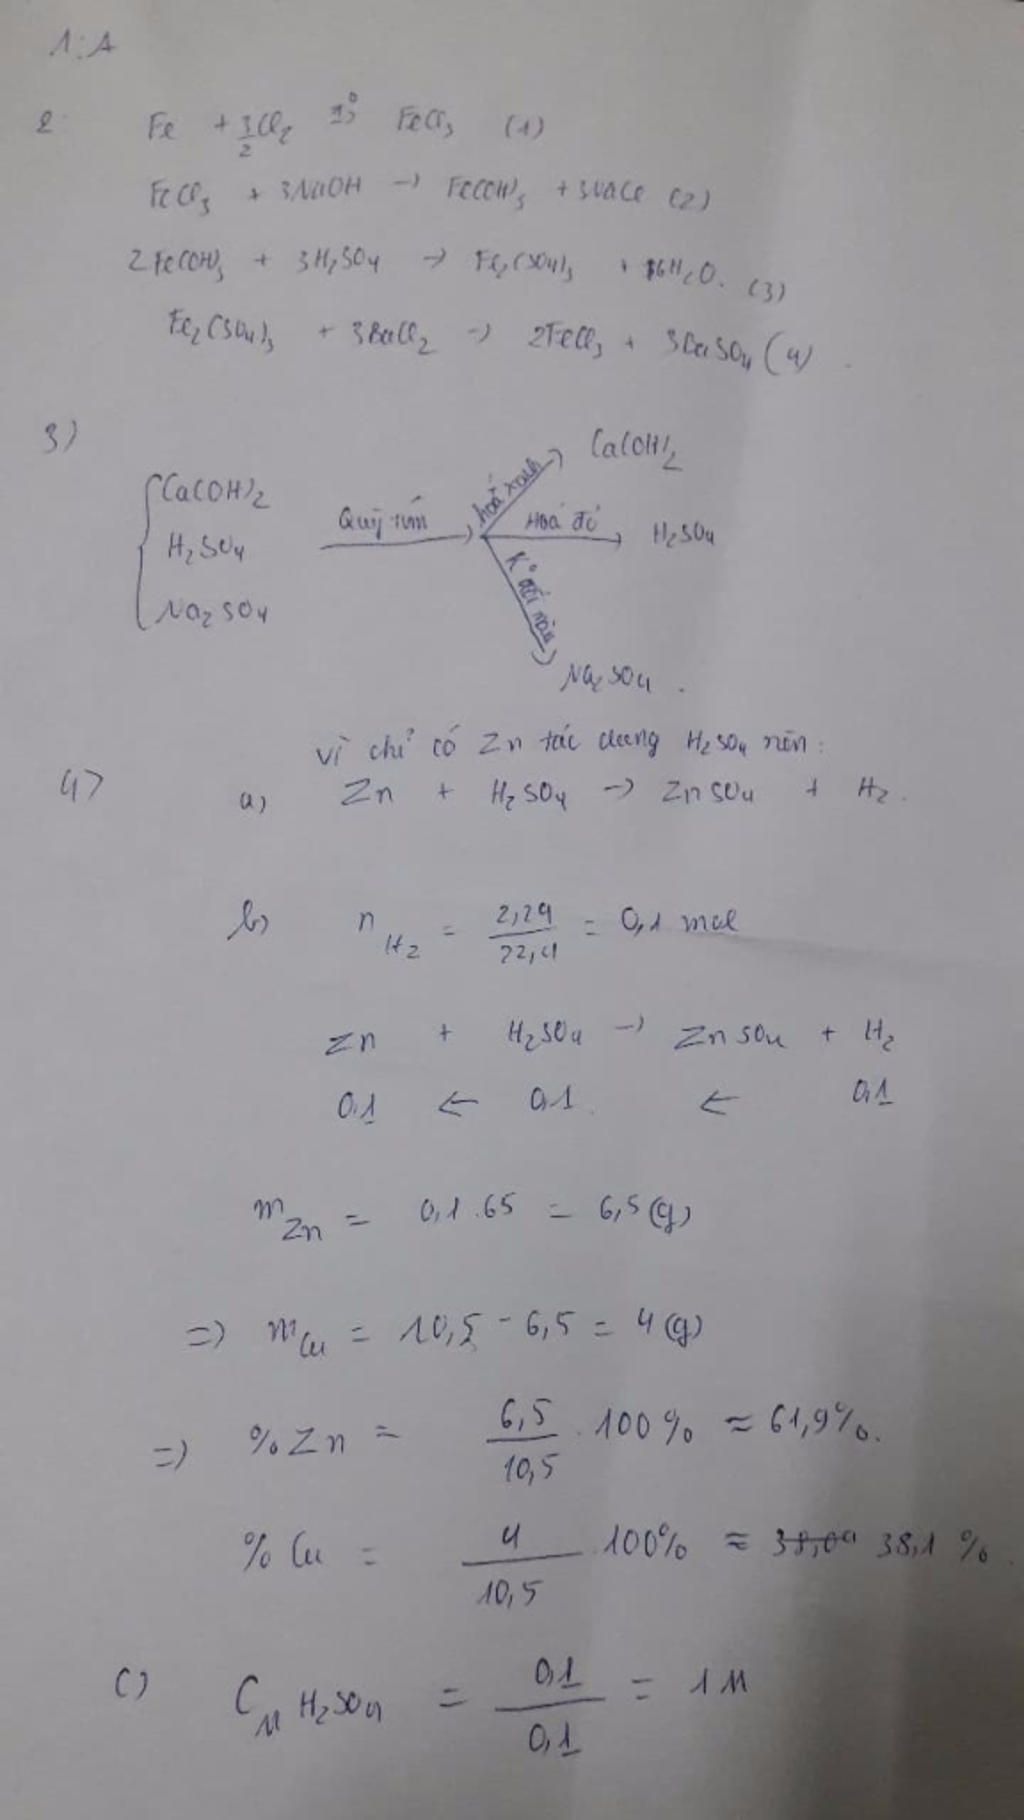 1: A
2. Fe + 3/2 Cl2 t°→ FeCl3 (1)
FeCl3 + 3NaOH → Fe(OH)3 + 3NaCl (2)
2Fe(OH)3 + 3H2SO4 → Fe2(SO4)3 + 6H2O. (3)
Fe2(SO4)3 + 3BaCl2 → 2FeCl3 + 3BaSO4 (4)
3)
Ca(OH)2
H2SO4
Na2SO4
Quỳ tím
hoá xanh Ca(OH)2
Hoá đỏ H2SO4
K° đổi màu Na2SO4.
Vì chỉ có Zn tác dụng H2SO4 nên:
4) a) Zn + H2SO4 → ZnSO4 + H2.
b) nH2 = 2,24/22,4 = 0,1 mol
Zn + H2SO4 → ZnSO4 + H2
0,1 ← 0,1 ← 0,1
mZn = 0,1.65 = 6,5 (g)
=) mCu = 10,5 - 6,5 = 4 (g)
=) %Zn = 6,5/10,5 . 100% ≈ 61,9%.
%Cu = 4/10,5 100% ≈ 38,1%
c) CM H2SO4 = 0,1/0,1 = 1M